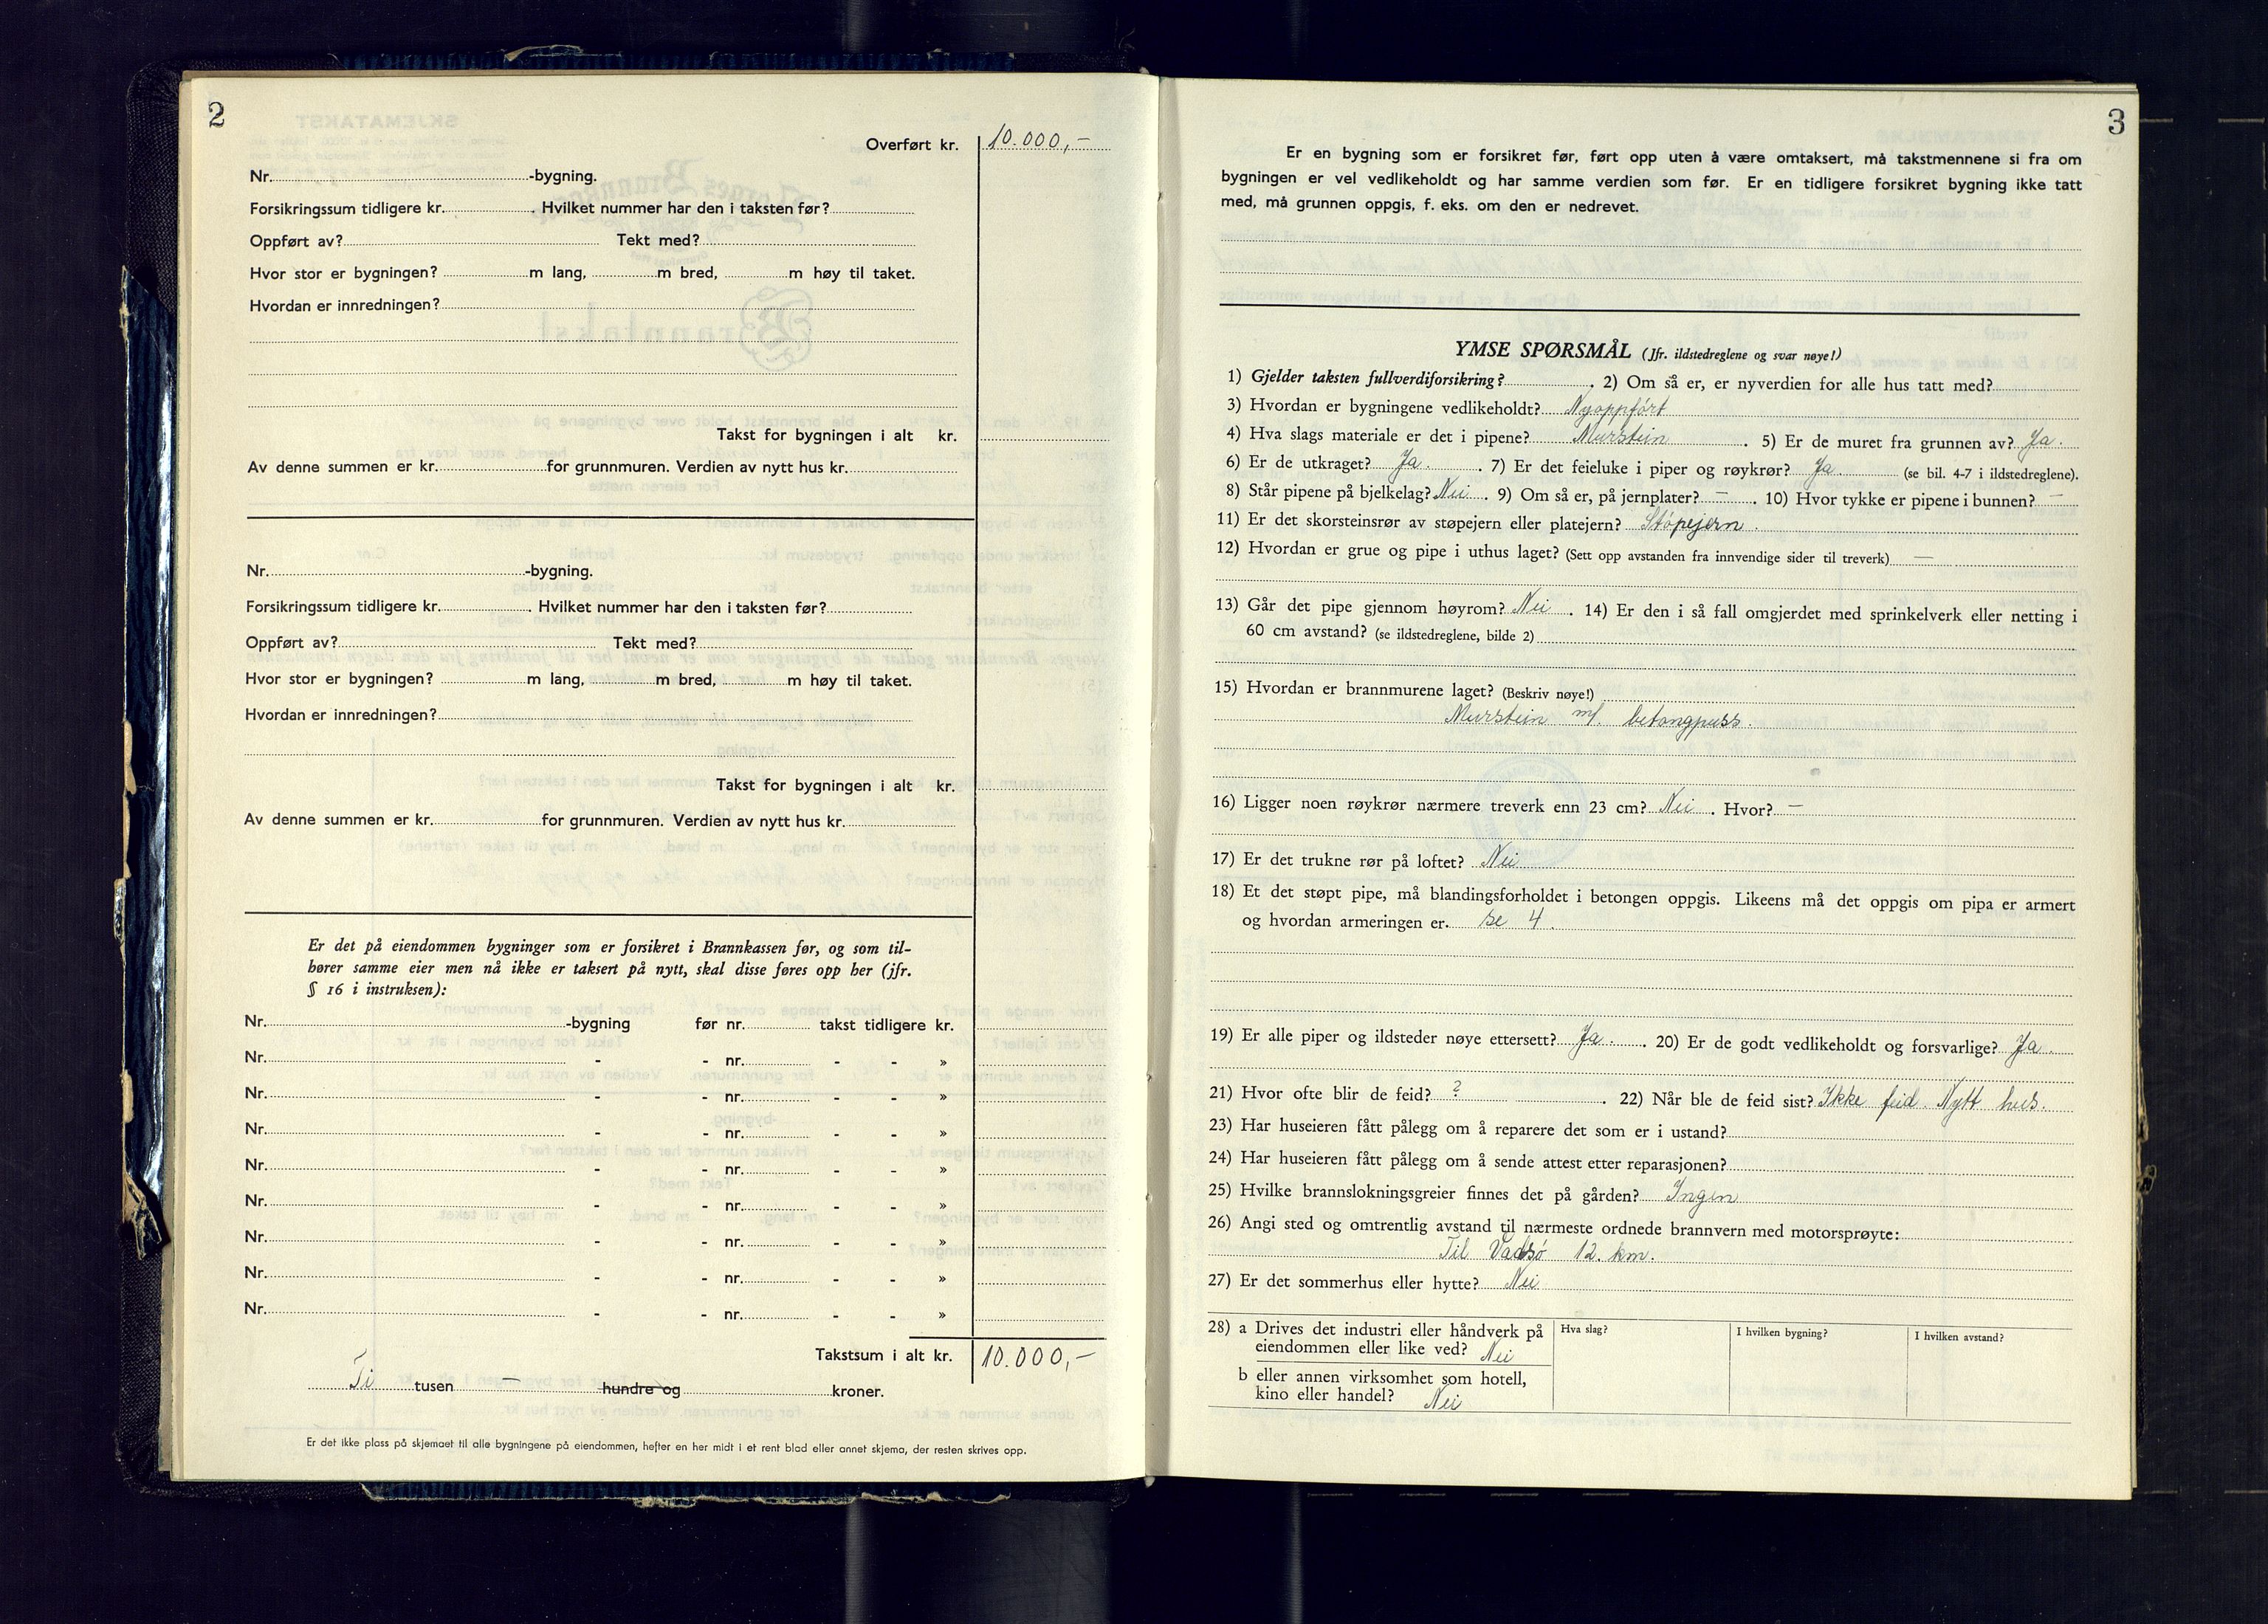 2
Overført kr. 10.000,-
Nr. -bygning.
Forsikringssum tidligere kr. . Hvilket nummer har den i taksten før?
Oppført av? Tekt med?
Hvor stor er bygningen? m lang, m bred, m høy til taket.
Hvordan er innredningen?
Takst for bygningen i alt kr.
Av denne summen er kr. for grunnmuren. Verdien av nytt hus kr.
Nr. -bygning.
Forsikringssum tidligere kr. . Hvilket nummer har den i taksten før?
Oppført av? Tekt med?
Hvor stor er bygningen? m lang, m bred, m høy til taket.
Hvordan er innredningen?
Takst for bygningen i alt kr.
Av denne summen er kr. for grunnmuren. Verdien av nytt hus kr.
Er det på eiendommen bygninger som er forsikret i Brannkassen før, og som til-
hører samme eier men nå ikke er taksert på nytt, skal disse føres opp her (jfr.
§ 16 i instruksen):
Nr. -bygning før nr. takst tidligere kr.
Nr. - - nr. - - »
Nr. - - nr. - - »
Nr. - - nr. - - »
Nr. - - nr. - - »
Nr. - - nr. - - »
Nr. - - nr. - - »
Nr. - - nr. - - »
Nr. - - nr. - - »
Takstsum i alt kr. 10.000,-
Ti tusen - hundre og kroner.
Er det ikke plass på skjemaet til alle bygningene på eiendommen, hefter en her midt i et rent blad eller annet skjema, der resten skrives opp.
3
Er en bygning som er forsikret før, ført opp uten å være omtaksert, må takstmennene si fra om
bygningen er vel vedlikeholdt og har samme verdien som før. Er en tidligere forsikret bygning ikke tatt
med, må grunnen oppgis, f. eks. om den er nedrevet.
YMSE SPØRSMÅL (Jfr. ildstedreglene og svar nøye!)
1) Gjelder taksten fullverdiforsikring? . 2) Om så er, er nyverdien for alle hus tatt med?
3) Hvordan er bygningene vedlikeholdt? Nyoppført
4) Hva slags materiale er det i pipene? Murstein . 5) Er de muret fra grunnen av? Ja.
6) Er de utkraget? Ja. . 7) Er det feieluke i piper og røykrør? Ja (se bil. 4-7 i ildstedreglene).
8) Står pipene på bjelkelag? Nei . 9) Om så er, på jernplater? - . 10) Hvor tykke er pipene i bunnen? -
11) Er det skorsteinsrør av støpejern eller platejern? Støpejern.
12) Hvordan er grue og pipe i uthus laget? (Sett opp avstanden fra innvendige sider til treverk) -
13) Går det pipe gjennom høyrom? Nei . 14) Er den i så fall omgjerdet med sprinkelverk eller netting i
60 cm avstand? (se ildstedreglene, bilde 2)
15) Hvordan er brannmurene laget? (Beskriv nøye!)
Murstein m/ betongpuss.
16) Ligger noen røykrør nærmere treverk enn 23 cm? Nei . Hvor? -
17) Er det trukne rør på loftet? Nei
18) Et det støpt pipe, må blandingsforholdet i betongen oppgis. Likeens må det oppgis om pipa er armert
og hvordan armeringen er. se 4.
19) Er alle piper og ildsteder nøye ettersett? Ja. . 20) Er de godt vedlikeholdt og forsvarlige? Ja.
21) Hvor ofte blir de feid? ? . 22) Når ble de feid sist? Ikke feid. Nytt hus.
23) Har huseieren fått pålegg om å reparere det som er i ustand?
24) Har huseieren fått pålegg om å sende attest etter reparasjonen?
25) Hvilke brannslokningsgreier finnes det på gården? Ingen
26) Angi sted og omtrentlig avstand til nærmeste ordnede brannvern med motorsprøyte:
Til Vadsø 12. km.
27) Er det sommerhus eller hytte? Nei
28) a Drives det industri eller håndverk på
eiendommen eller like ved? Nei
Hva slag? I hvilken bygning? I hvilken avstand?
b eller annen virksomhet som hotell,
kino eller handel? Nei